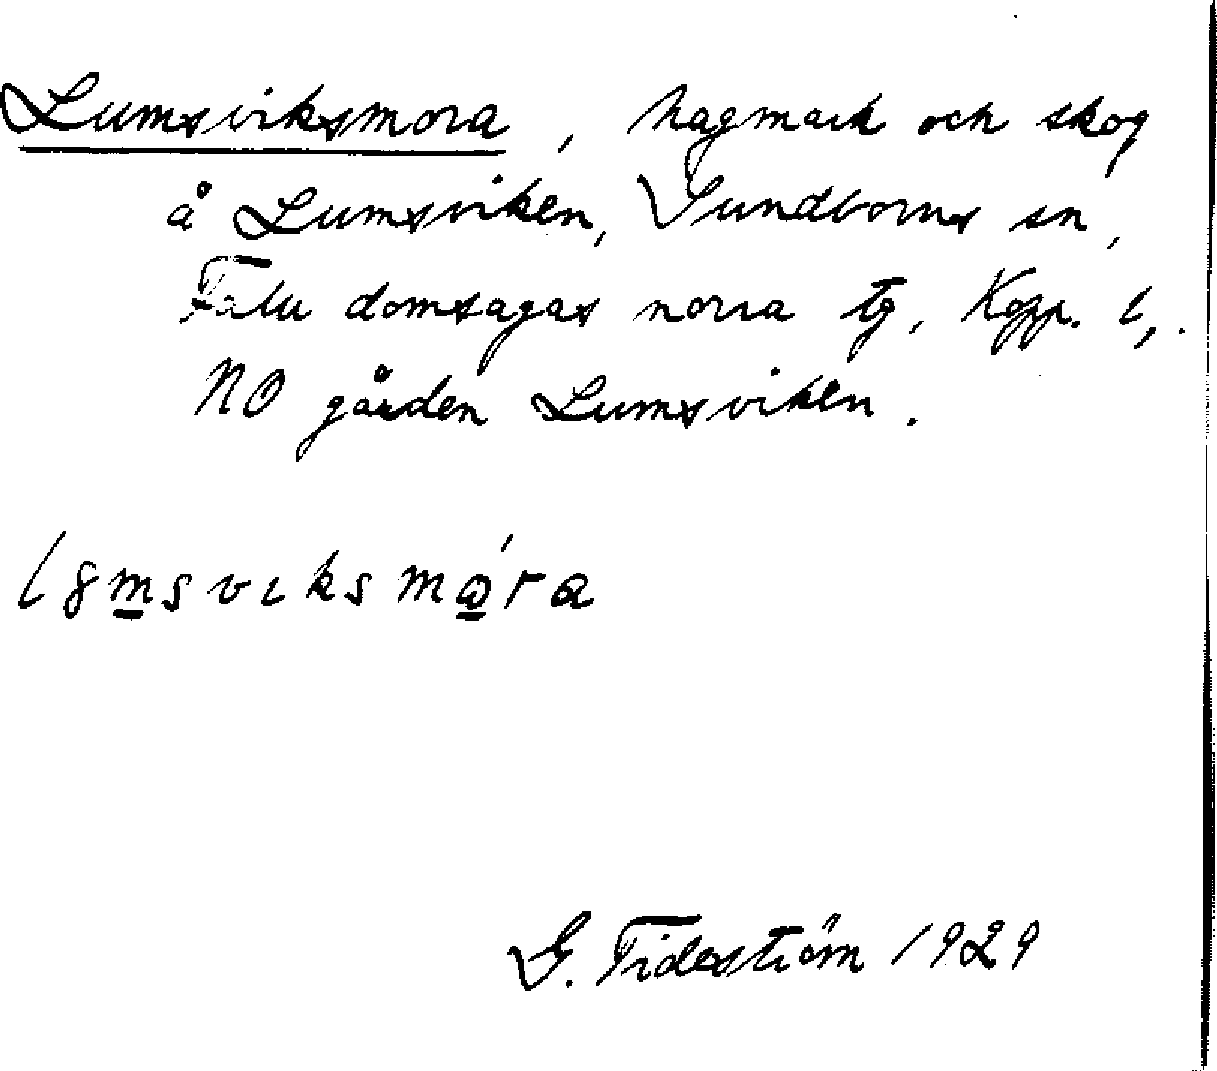 Lumsviksmora, hagmark och skog
å Lumsviken, Sundborns sn,
Falu domsagas norra tg, Kopp. l,.
NO gården Lumsviken.
l8msvıksmɷ́ra
G. Tideström 1929